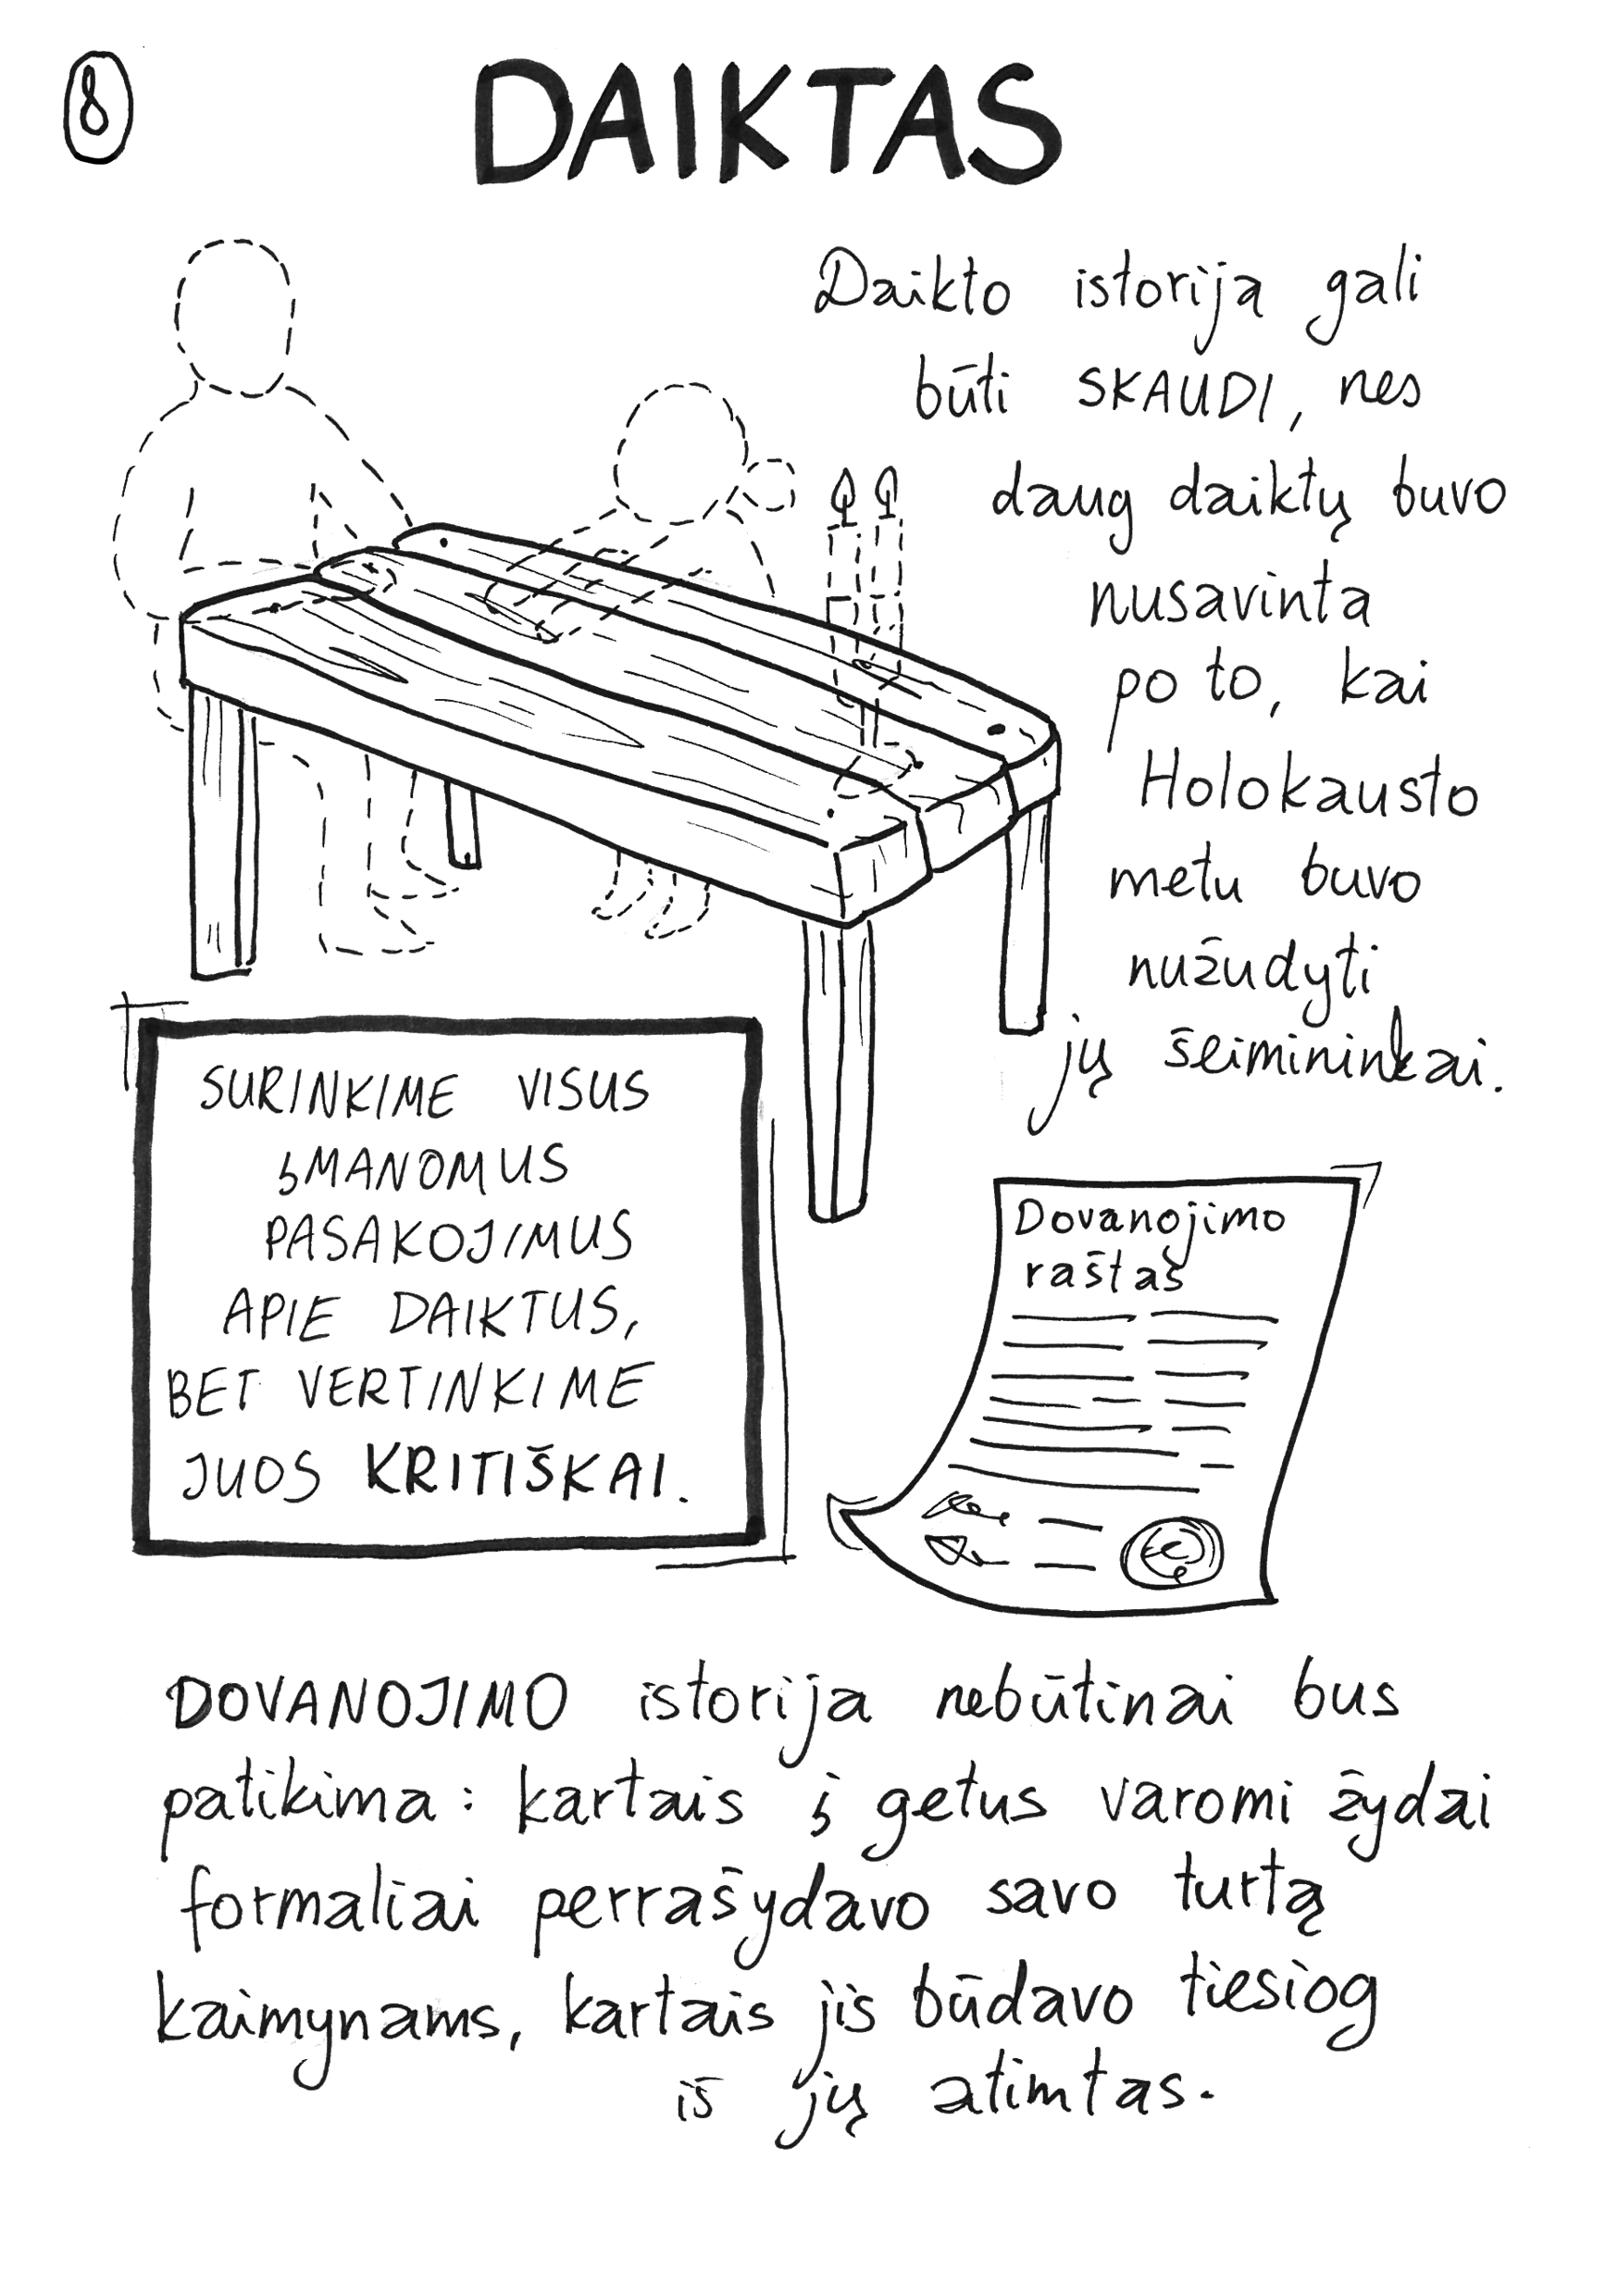 8
DAIKTAS
Daikto istorija gali
būti SKAUDI, nes
daug daiktų buvo
nusavinta
po to, kai
Holokausto
metu buvo
nužudyti
jų šeimininkai.
SURINKIME VISUS
ĮMANOMUS
PASAKOJIMUS
APIE DAIKTUS,
BET VERTINKIME
JUOS KRITIŠKAI.
Dovanojimo
raštas
DOVANOJIMO istorija nebūtinai bus
patikima: kartais į getus varomi žydai
formaliai perrašydavo savo turtą
kaimynams, kartais jis būdavo tiesiog
iš jų atimtas.